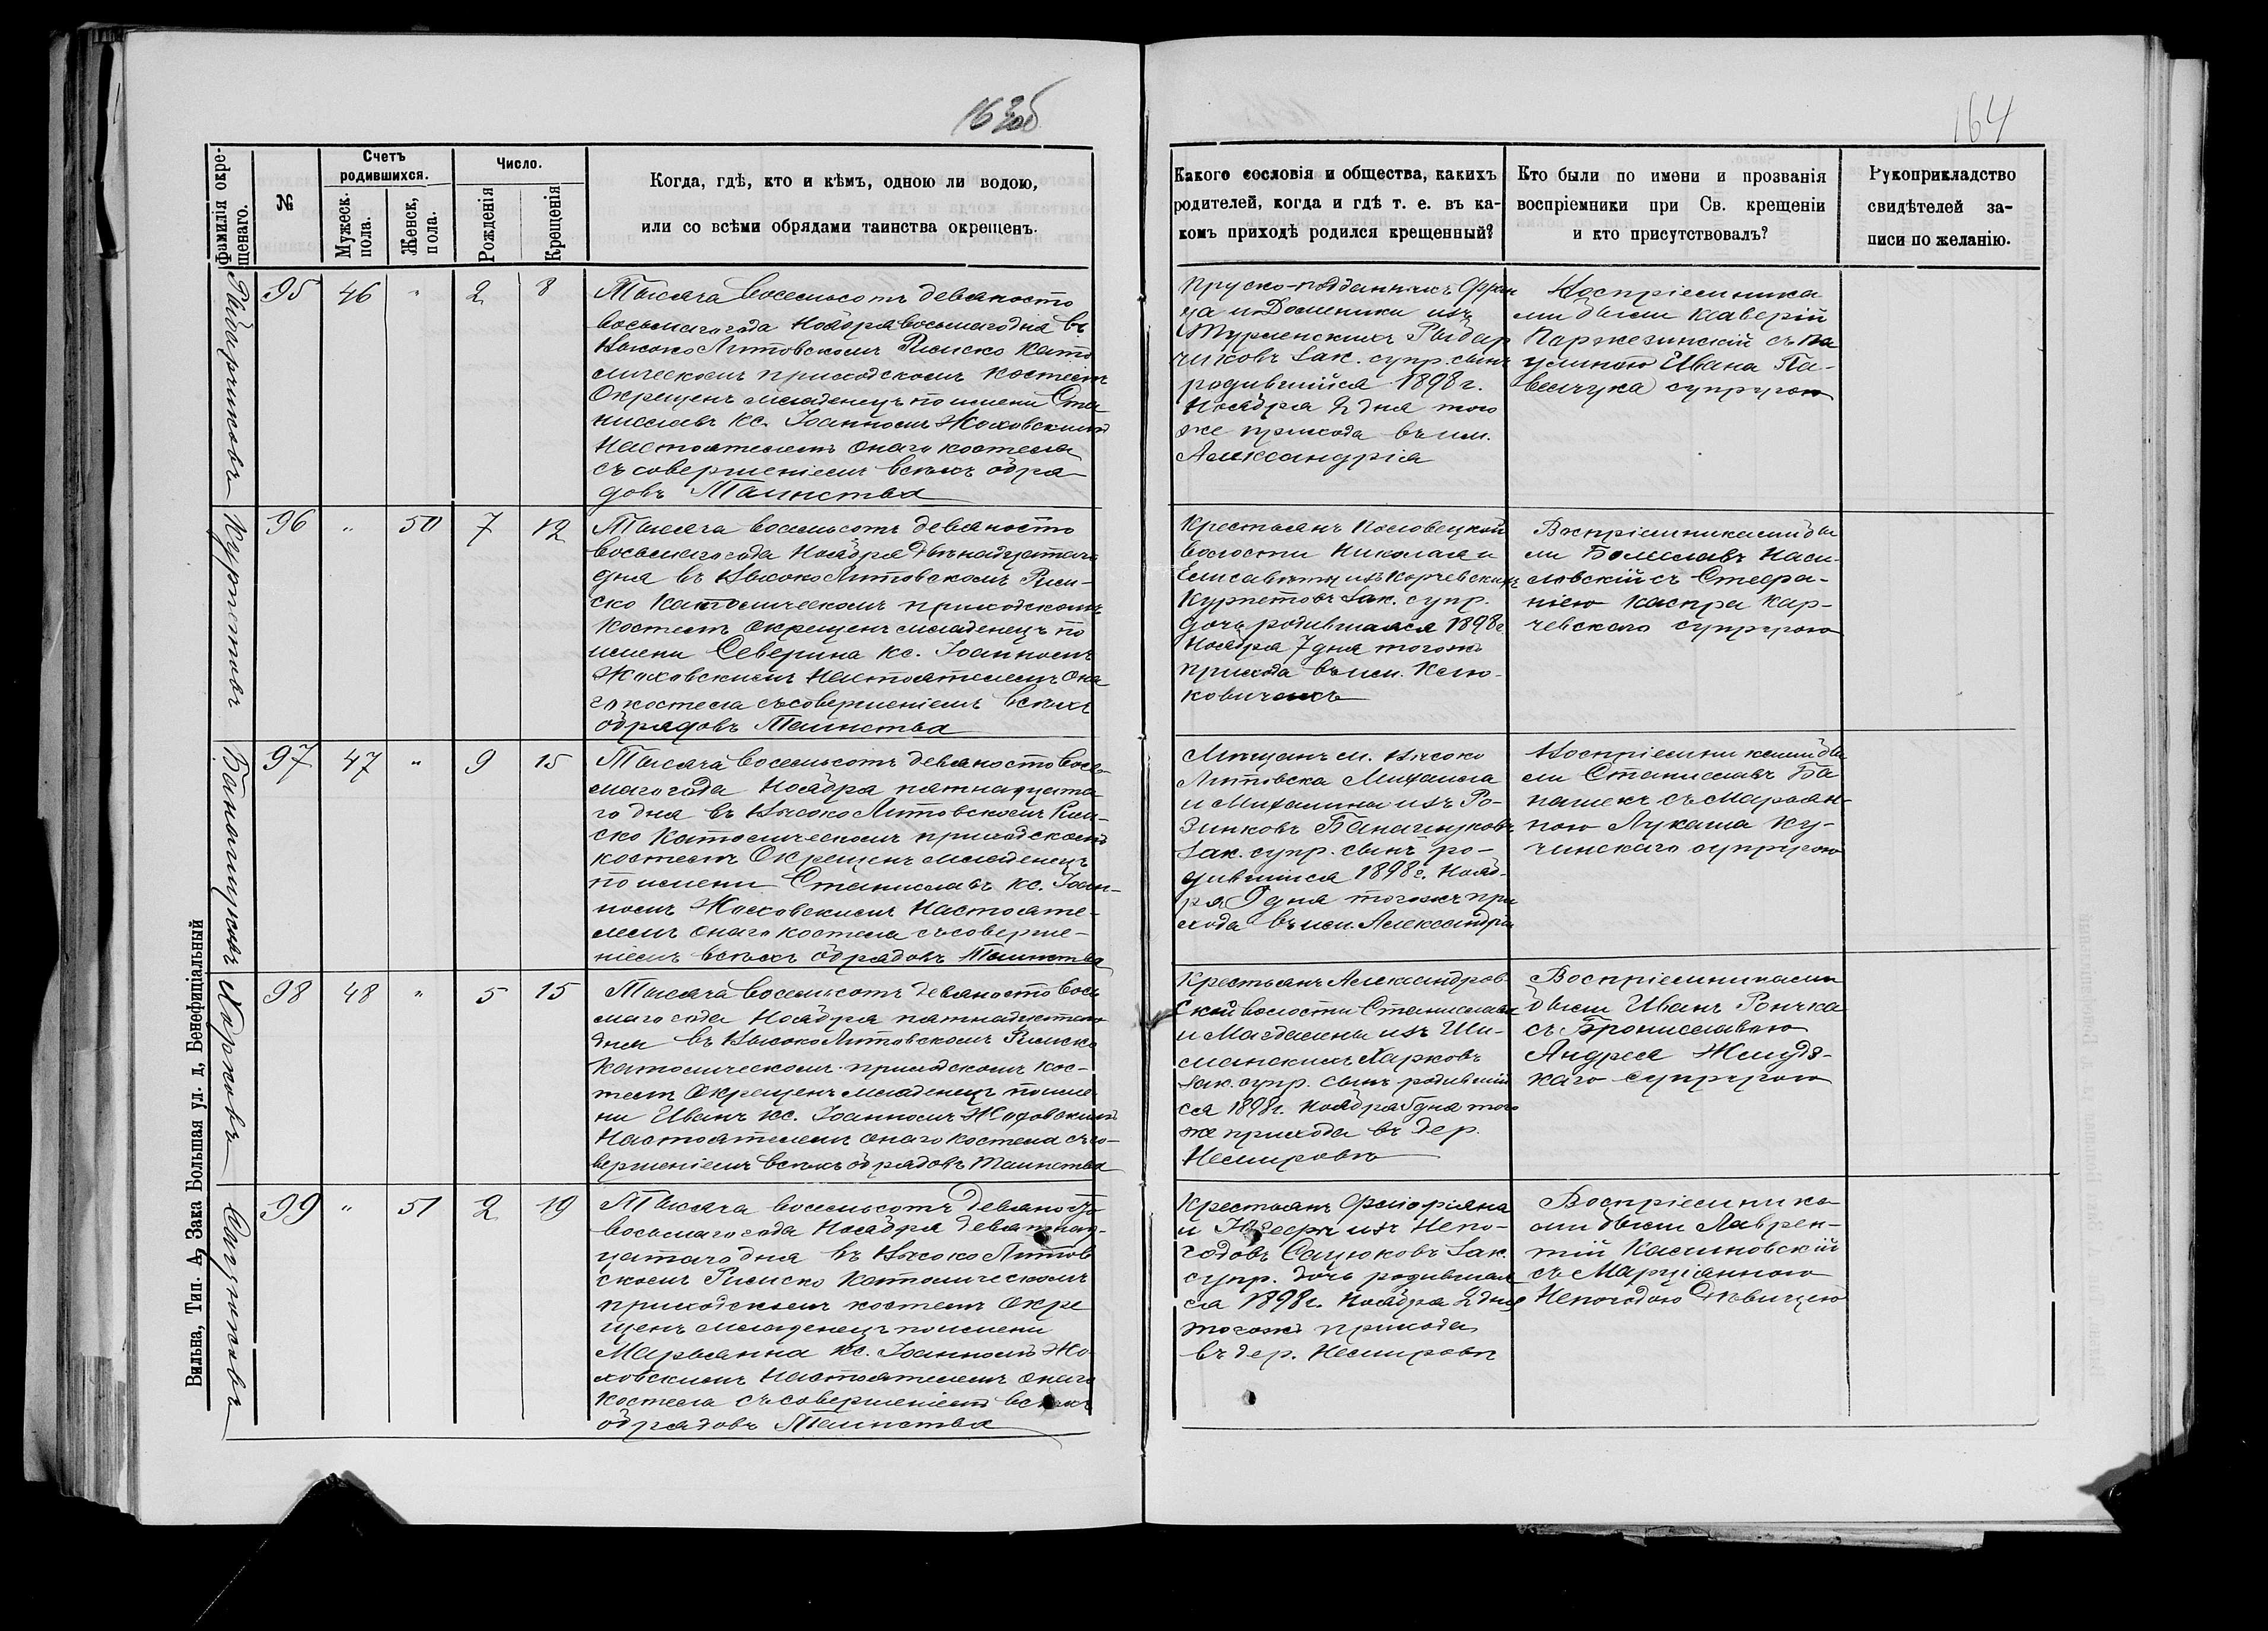 163об
164
Вильна, Тип. А, Зака Большая ул. д, Бенефиціальный
Фамилія окре-
щенаго.
№
Счетъ
родившихся.
Мужеск.
пола.
Женск,
пола.
Число.
Рожденія
Крещенія
Когда, гдѣ, кто и кѣмъ, одною ли водою,
или со всѣми обрядами таинства окрещенъ.
Какого сословія и общества, какихъ
родителей, когда и гдѣ т. е. въ ка-
комъ приходѣ родился крещенный?
Кто были по имени и прозванія
воспріемники при Св. крещеніи
и кто присутствовалъ?
Рукоприкладство
свидѣтелей за-
писи по желанію.
Рыдарчиковъ
95 46 " 2 8
Тысяча восемьсотъ девяносто
восьмаго года Ноября восьмаго дня въ
Высоко Литовскомъ Римско Като
лическомъ приходскомъ костелѣ
Окрещенъ младенецъ по имени Ста
ниславъ кс. Іоанномъ Жоховскимъ
Настоятелемъ онаго костела
съ совершеніемъ всѣхъ обря
довъ Таинства
Пруско-подданныхъ Фран
ца и Доминики изъ
Рыдар
чиковъ зак. супр. сынъ
родившийся 1898 г.
Ноября 2 дня того
же прихода въ им.
Александрія
Воспріемника
ми были Ксаверій
съ Па
улиною Ивана Па-
велчука супругою
Курпетовъ
96 " 50 7 12
Тысяча восемьсотъ девяносто
восьмаго года Ноября двѣнадцатаго
дня въ Высоко Литовскомъ Рим-
ско Католическомъ приходскомъ
костелѣ окрещенъ младенецъ по
имени Северина кс. Іоанномъ
Жоховскимъ Настоятелемъ она
го костела съ совершеніемъ всѣхъ
обрядовъ Таинства
Крестьянъ Половецкой
волости Николая и
Елисаветы изъ Корчевскихъ
Курпетовъ зак. супр.
дочь родившаяся 1898 г
Ноября 7 дня тогожъ
прихода въ им. Клю-
ковичахъ
Воспріемниками бы
ли Болеславъ Наси-
ловскій съ Стефа-
ніею Каспра Кар-
чевскаго супругою
Банащуковъ
97 47 " 9 15
Тысяча восемьсотъ девяносто вось
маго года Ноября пятнадцата
го дня въ Высоко Литовскомъ Рим-
ско Католическомъ приходскомъ
костелѣ Окрещенъ младенецъ
по имени Станиславъ кс. Іоан-
номъ Жоховскимъ Настояте-
лемъ онаго костела съ соверше-
ніемъ всѣхъ обрядовъ Таинства
Мѣщанъ м. Высоко
Литовска Михаила
и Михалины изъ Ро-
зинковъ Банащуковъ
зак. супр. сынъ ро-
дившийся 1898 г. Нояб-
ря 9 дня тогожъ при
хода въ им. Александріи
Воспріемниками бы
ли Станиславъ Ба
нашекъ съ Марьян-
ною Лукаша Ку-
чинскаго супругою
Харковъ
98 48 " 5 15
Тысяча восемьсотъ девяносто вось
маго года Ноября пятнадцатаго
дня въ Высоко Литовскомъ Римско
Католическомъ приходскомъ кос-
телѣ Окрещенъ младенецъ по име
ни Иванъ кс. Іоанномъ Жоховскимъ
Настоятелемъ онаго костела съ со-
вершеніемъ всѣхъ обрядовъ Таинства
Крестьянъ Александров-
ской волости Станислава
и Магдалины изъ Ши-
манскихъ Харковъ
зак. супр. сынъ родившій
ся 1898 г. Ноября 5 дня того
же прихода въ дер.
Немировѣ
Воспріемниками
были Иванъ Рончка
съ Брониславою
Андрея Жмудз-
каго супругою
Сацюковъ
99 " 51 2 19
Тысяча восемьсотъ девяносто
восьмаго года Ноября девятнад-
цатаго дня въ Высоко Литов
скомъ Римско Католическомъ
приходскомъ костелѣ Окре
щенъ младенецъ по имени
Марьянна кс. Іоанномъ Жо
ховскимъ Настоятелемъ онаго
костела съ совершеніемъ всѣхъ
обрядовъ Таинства
Крестьянъ Флоріяна
и Юзефы изъ Непо-
годовъ Сацюковъ зак.
супр. дочь родившая
ся 1898 г. Ноября 2 дня
тогожъ прихода
въ дер. Немировѣ
Воспріемника
ми были Лаврен-
тій Калиновскій
съ Марціанною
Непогодою дѣвицею